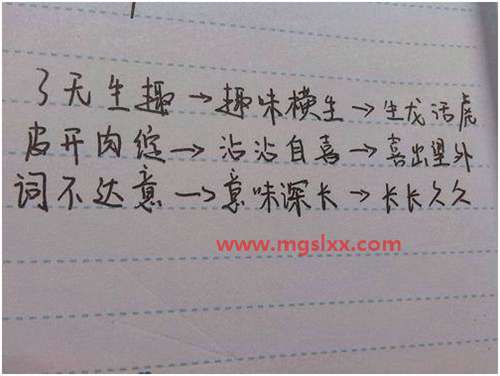 了无生趣→趣味横生→生龙活虎
皮开肉绽→沾沾自喜→喜出望外
词不达意→意味深长→长长久久
www.mgslxx.com